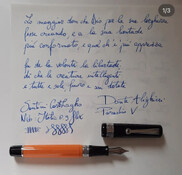 1/3
Lo maggior don che Dio per la sua larghezza
fesse creando, e a la sua bontade
più conformato, e quel ch'e' più apprezza
fu de la volontà la libertade;
di che le creature intelligenti
e tutte e sole, fuoro e son dotate
Dante Alighieri
Paradiso V
Nib